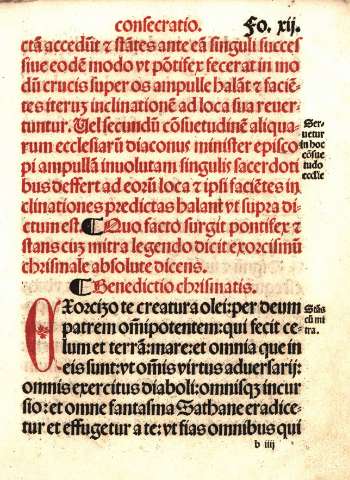 consecratio.
Fo. xij.
ctā accedūt ⁊ stātes ante eā singuli succes
siue eodē modo vt pōtifex fecerat in mo
dū crucis super os ampulle halāt ⁊ faciē-
tes iteruȝ inclinationē ad loca sua reuer-
tuntur. Uel secundū cōsuetudinē aliqua-
rum ecclesiarū diaconus minister episco
pi ampullā inuolutam singulis sacerdoti
bus deffert ad eorū loca ⁊ ipsi faciētes in
clinationes predictas halant vt supra di-
ctum est. ¶ Quo facto surgit pontifex ⁊
stans cuȝ mitra legendo dicit exorcismū
chrismale absolute dicens.
Ser-
uetur
in hoc
cōsue
tudo
ecclie
¶ Benedictio chrismatis.
EXorcizo te creatura olei: per deum
patrem om̄ipotentem: qui fecit ce-
lum et terrā: mare: et omnia que in
eis sunt: vt om̄is virtus aduersarij:
omnis exercitus diaboli: omnisqȝ incur
sio: et omne fantasma Sathane eradice-
tur et effugetur a te: vt fias omnibus qui
Stās
cū mi
tra.
b iiij